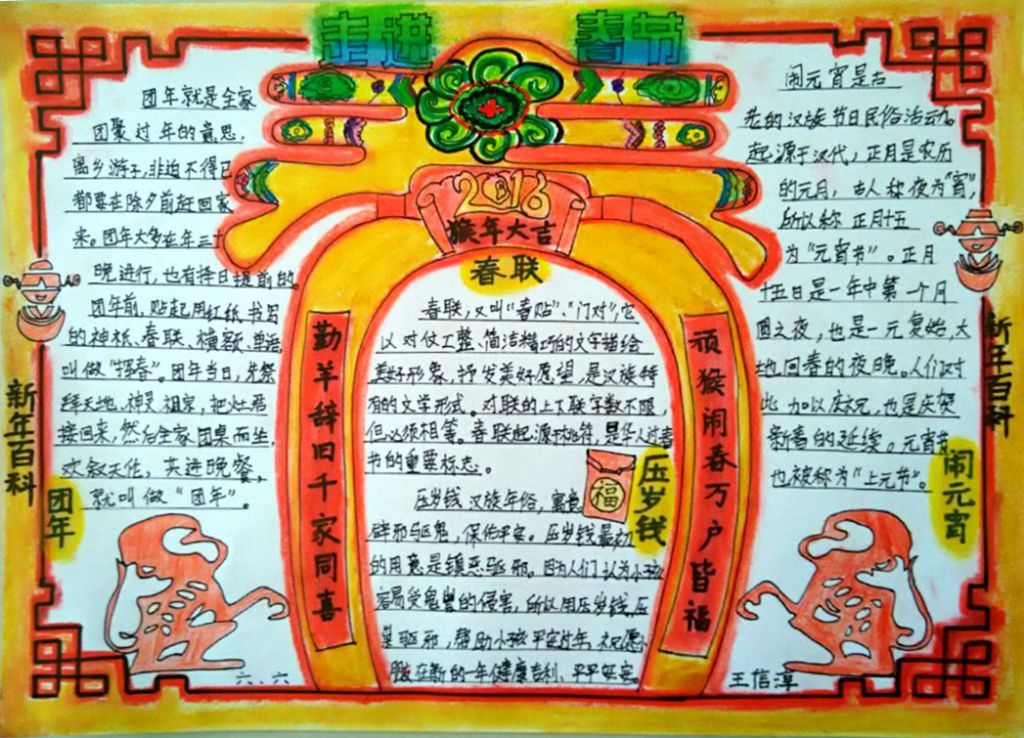 走进 春节
团年就是全家
团聚过年的意思,
离乡游子,非迫不得已
都要在除夕前赶回家
来。团年大多在年三十
晚进行,也有择日提前的。
团年前,贴起用红纸书写
的神纸、春联、横额、单语,
叫做“挥春”。团年当日,先祭
拜天地、神灵、祖宗,把灶君
接回来,然后全家团桌而坐,
欢叙天伦,共进晚餐,
就叫做“团年”。
新年百科
团年
六、六
2016
猴年大吉
勤羊辞旧千家同喜
顽猴闹春万户皆福
春联
春联,又叫“春贴”、“门对”,它
以对仗工整、简洁精巧的文字描绘
美好形象,抒发美好愿望,是汉族特
有的文学形式。对联的上下联字数不限,
但必须相等。春联起源桃符,是华人过春
节的重要标志。
福
压岁钱
压岁钱 汉族年俗,寓意
辟邪驱鬼,保佑平安。压岁钱最初
的用意是镇恶驱邪。因为人们认为小孩
容易受鬼祟的侵害,所以用压岁钱压
祟驱邪,帮助小孩平安过年,祝愿小
朋友在新的一年健康吉利、平平安安。
闹元宵是古
老的汉族节日民俗活动。
起源于汉代,正月是农历
的元月,古人称夜为“宵”,
所以称正月十五
为“元宵节”。正月
十五日是一年中第一个月
圆之夜,也是一元复始,大
地回春的夜晚。人们对
此加以庆祝,也是庆贺
新春的延续。元宵节
也被称为“上元节”。
新年百科
闹元宵
王信淳